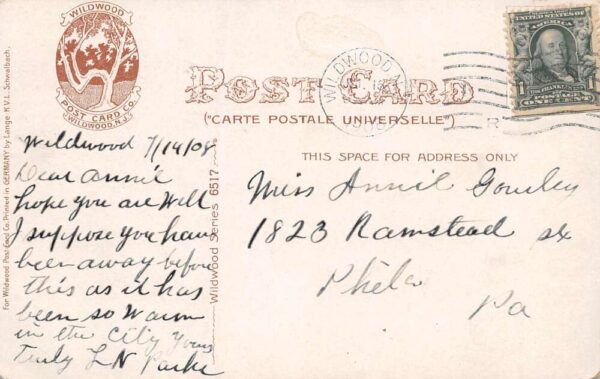 WILDWOOD
POST CARD CO.
WILDWOOD, N.J.
POST CARD
("CARTE POSTALE UNIVERSELLE")
THIS SPACE FOR ADDRESS ONLY
WILDWOOD
1908
R
UNITED STATES OF AMERICA
1
FRANKLIN
POSTAGE
ONE CENT
1
For Wildwood Post Card Co. Printed in GERMANY by Lange K.V.L. Schwalbach.
Wildwood Series 6517
Wildwood 7/14/08
Dear Annie
hope you are Well
I suppose you have
been away before
this as it has
been so Warm
in the City Yours
Truly L N Parke
Miss Annie
1823 Ramstead
Phila
Pa